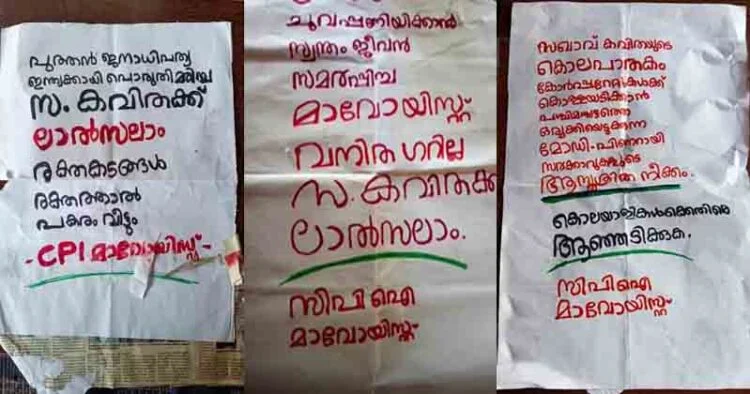 പുത്തൻ ജനാധിപത്യ
ഇന്ത്യക്കായി പൊരുതി മരിച്ച
സ. കവിതക്ക്
ലാൽസലാം
രക്തകടങ്ങൾ
രക്തത്താൽ
പകരം വീട്ടും
-CPI മാവോയിസ്റ്റ്-
ചുവപ്പണിയിക്കാൻ
സ്വന്തം ജീവൻ
സമർപ്പിച്ച
മാവോയിസ്റ്റ്
വനിത ഗറില്ല
സ. കവിതക്ക്
ലാൽസലാം.
സിപിഐ
മാവോയിസ്റ്റ്
സഖാവ് കവിതയുടെ
കൊലപാതകം
കോർപ്പറേറ്റുകൾക്ക്
കൊള്ളയടിക്കാൻ
പശ്ചിമഘട്ടത്തെ
ഒരുക്കിയെടുക്കുന്ന
മോഡി-പിണറായി
സർക്കാറുകളുടെ
ആസൂത്രിത നീക്കം.
കൊലയാളികൾക്കെതിരെ
ആഞ്ഞടിക്കുക.
സിപിഐ
മാവോയിസ്റ്റ്